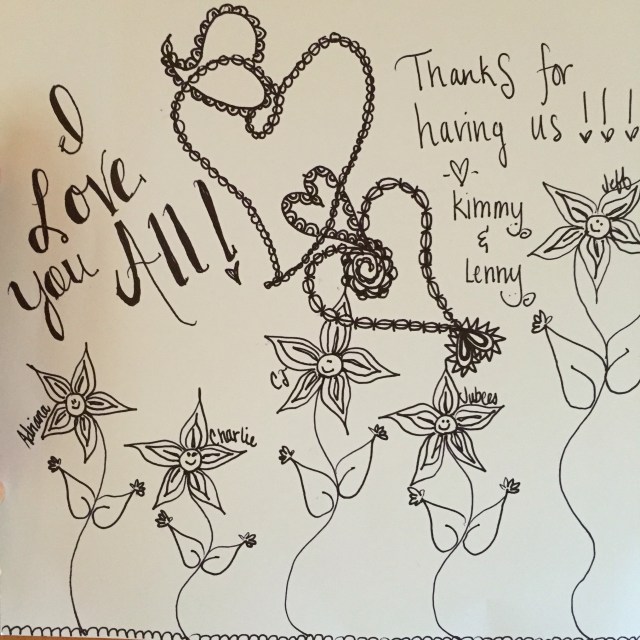 I
Love
you All!
Thanks for
having us !!!
Kimmy
&
Lenny
Jeff
CJ
Jubees
Adriana
Charlie